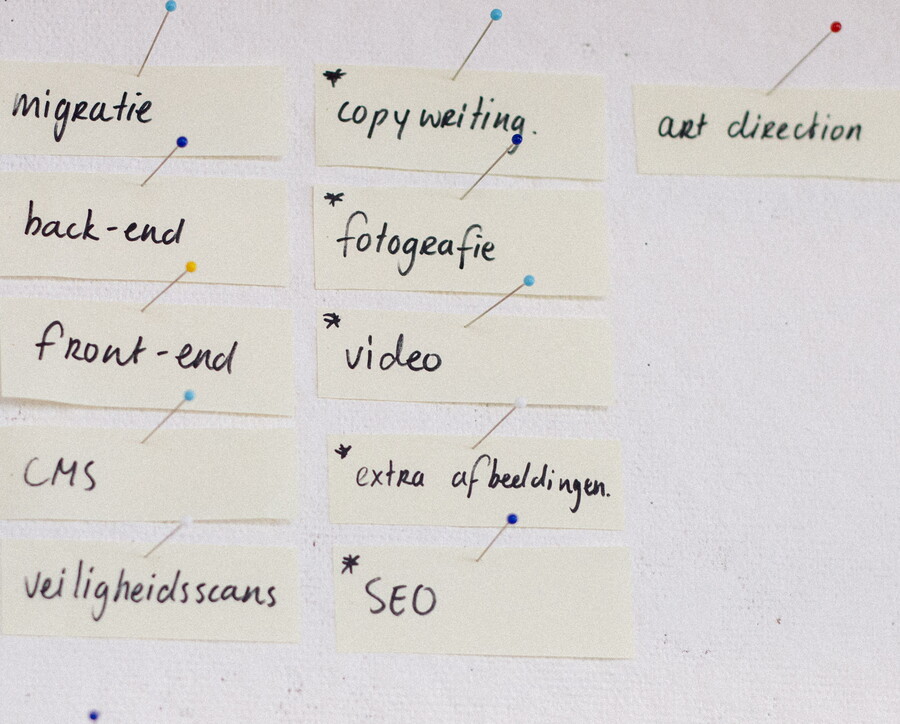 migratie
back-end
front-end
CMS
veiligheidsscans
* copywriting.
* fotografie
* video
* extra afbeeldingen.
* SEO
art direction